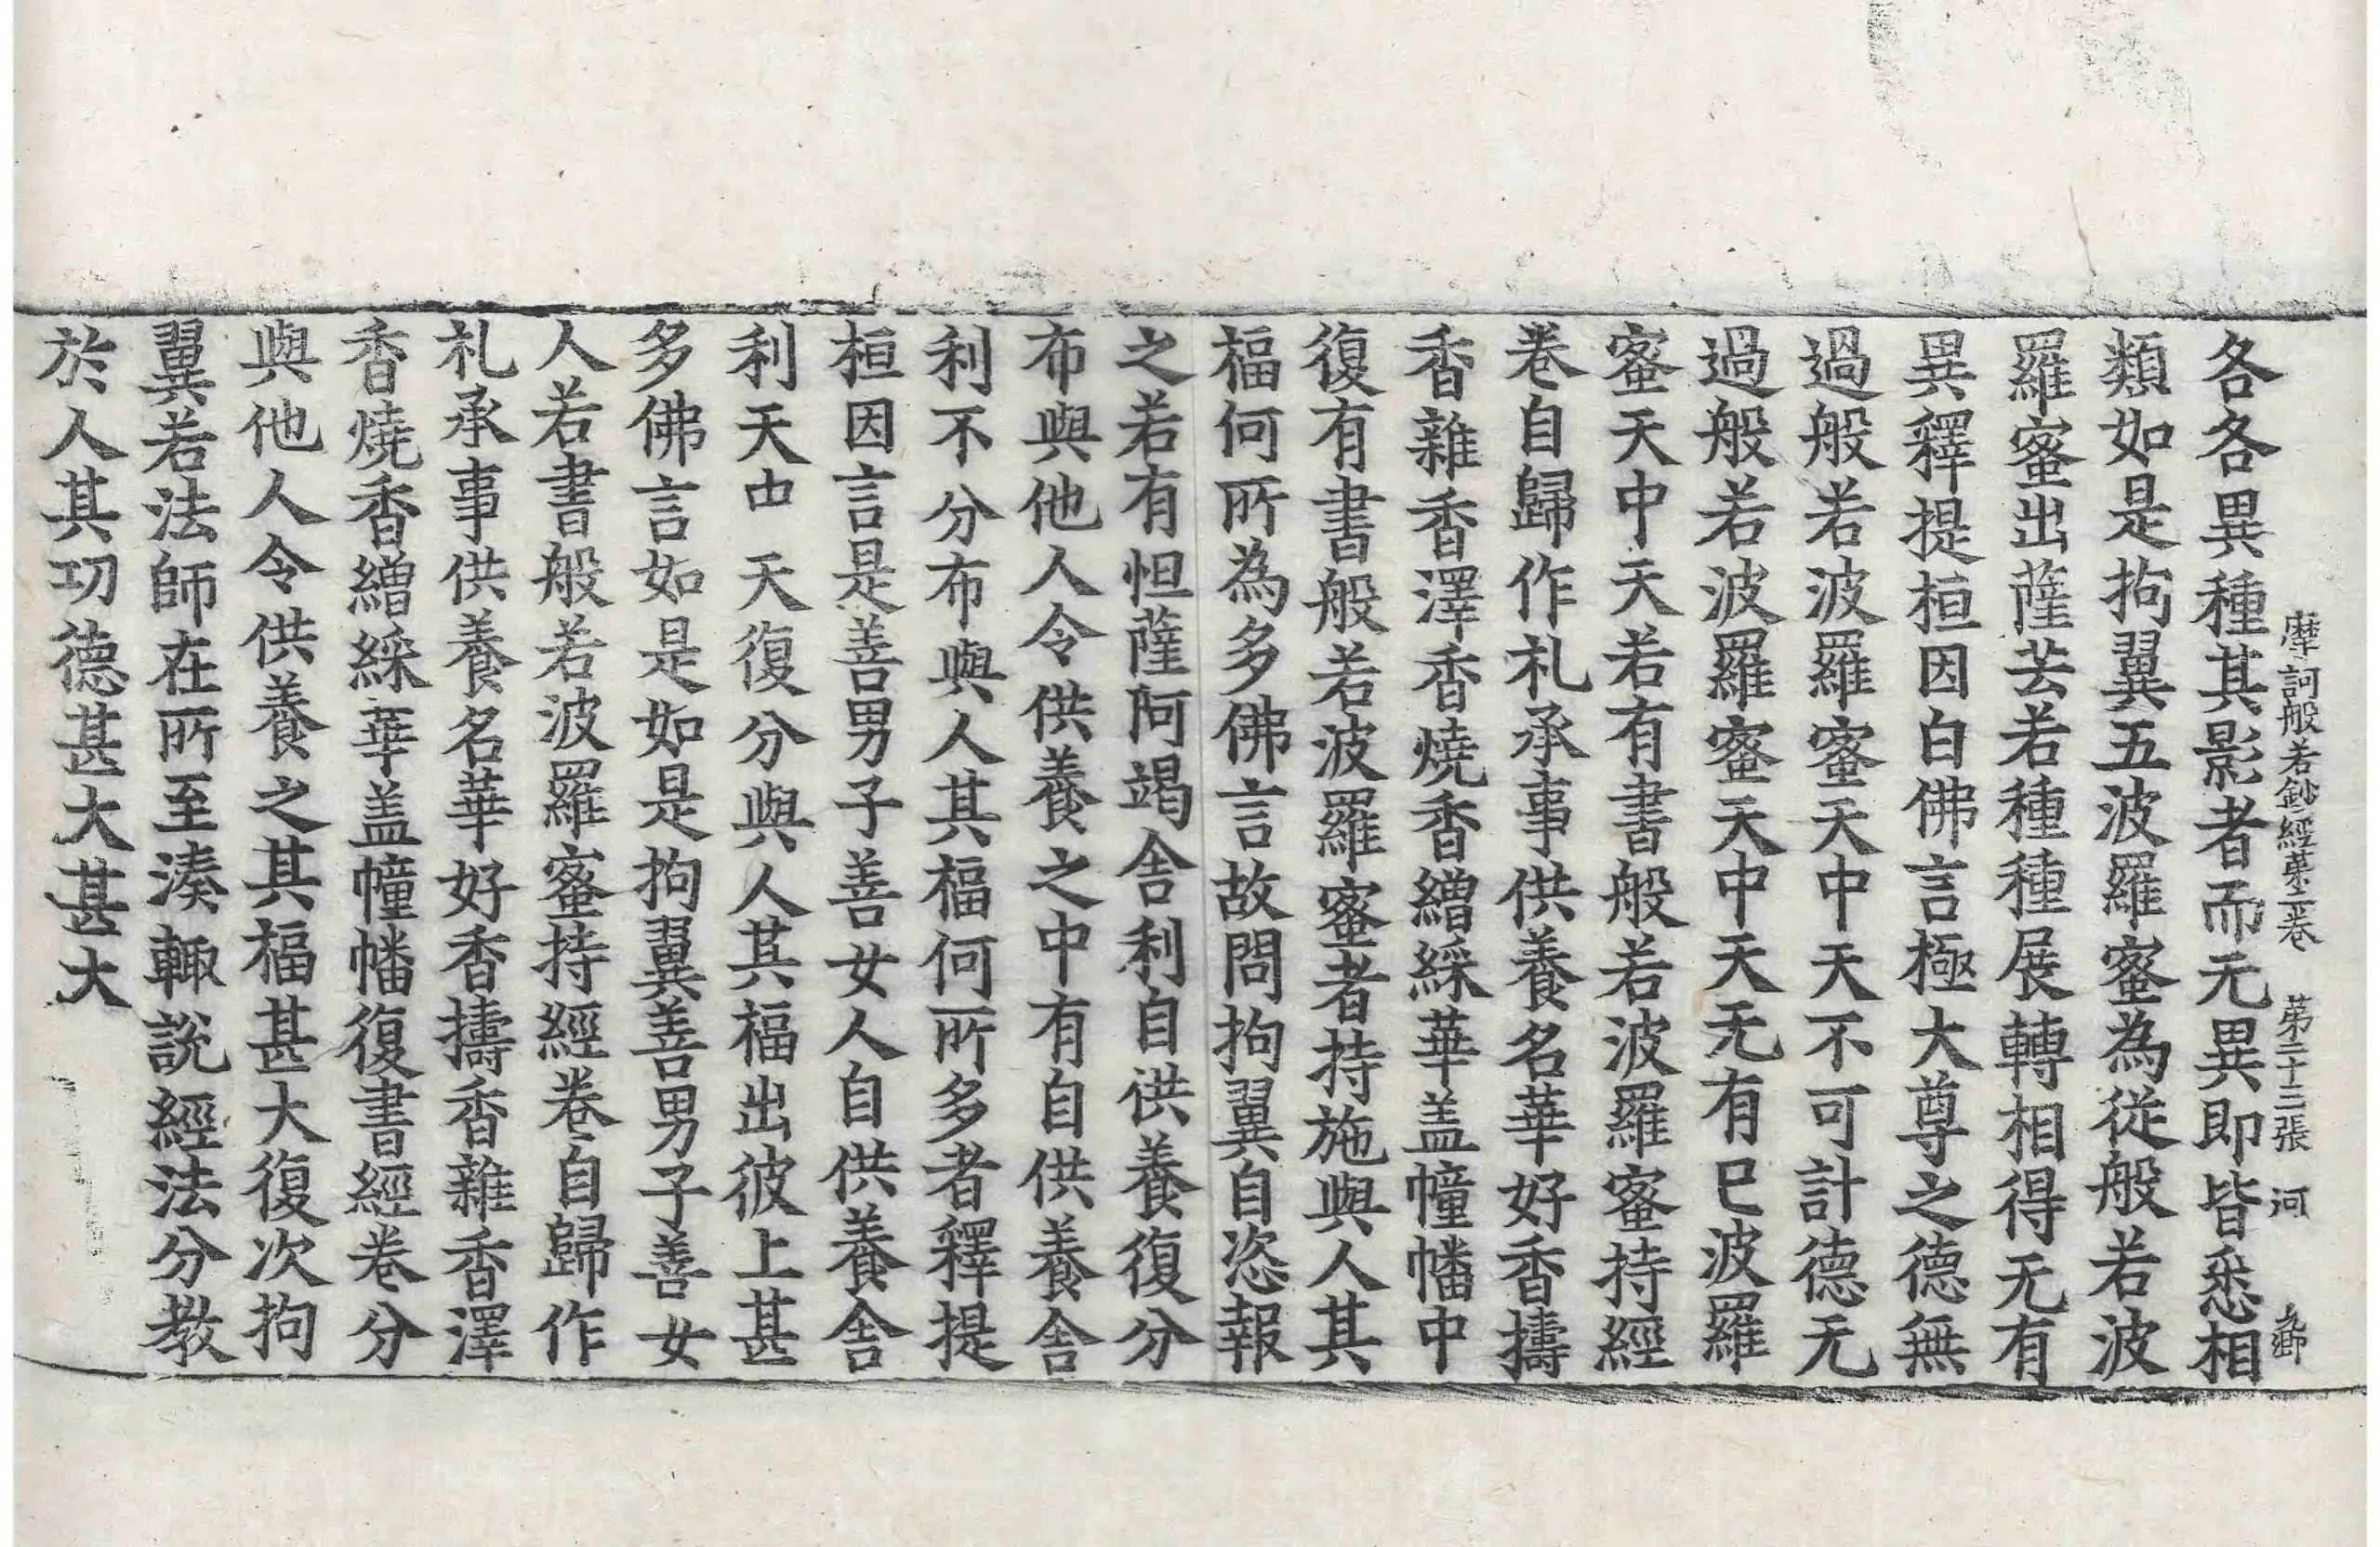 摩訶般若鈔經第二卷 第二十三張 河
各各異種其影者而无異即皆悉相
類如是拘翼五波羅蜜為從般若波
羅蜜出薩芸若種種展轉相得无有
異釋提桓因白佛言極大尊之德無
過般若波羅蜜天中天不可計德无
過般若波羅蜜天中天无有巳波羅
蜜天中天若有書般若波羅蜜持經
卷自歸作礼承事供養名華好香擣
香雜香澤香燒香繒綵華盖幢幡中
復有書般若波羅蜜者持施與人其
福何所為多佛言故問拘翼自恣報
之若有怛薩阿竭舍利自供養復分
布與他人令供養之中有自供養舍
利不分布與人其福何所多者釋提
桓因言是善男子善女人自供養舍
利天中天復分與人其福出彼上甚
多佛言如是如是拘翼善男子善女
人若書般若波羅蜜持經卷自歸作
礼承事供養名華好香擣香雜香澤
香燒香繒綵華盖幢幡復書經卷分
與他人令供養之其福甚大復次拘
翼若法師在所至湊輙說經法分教
於人其功德甚大甚大